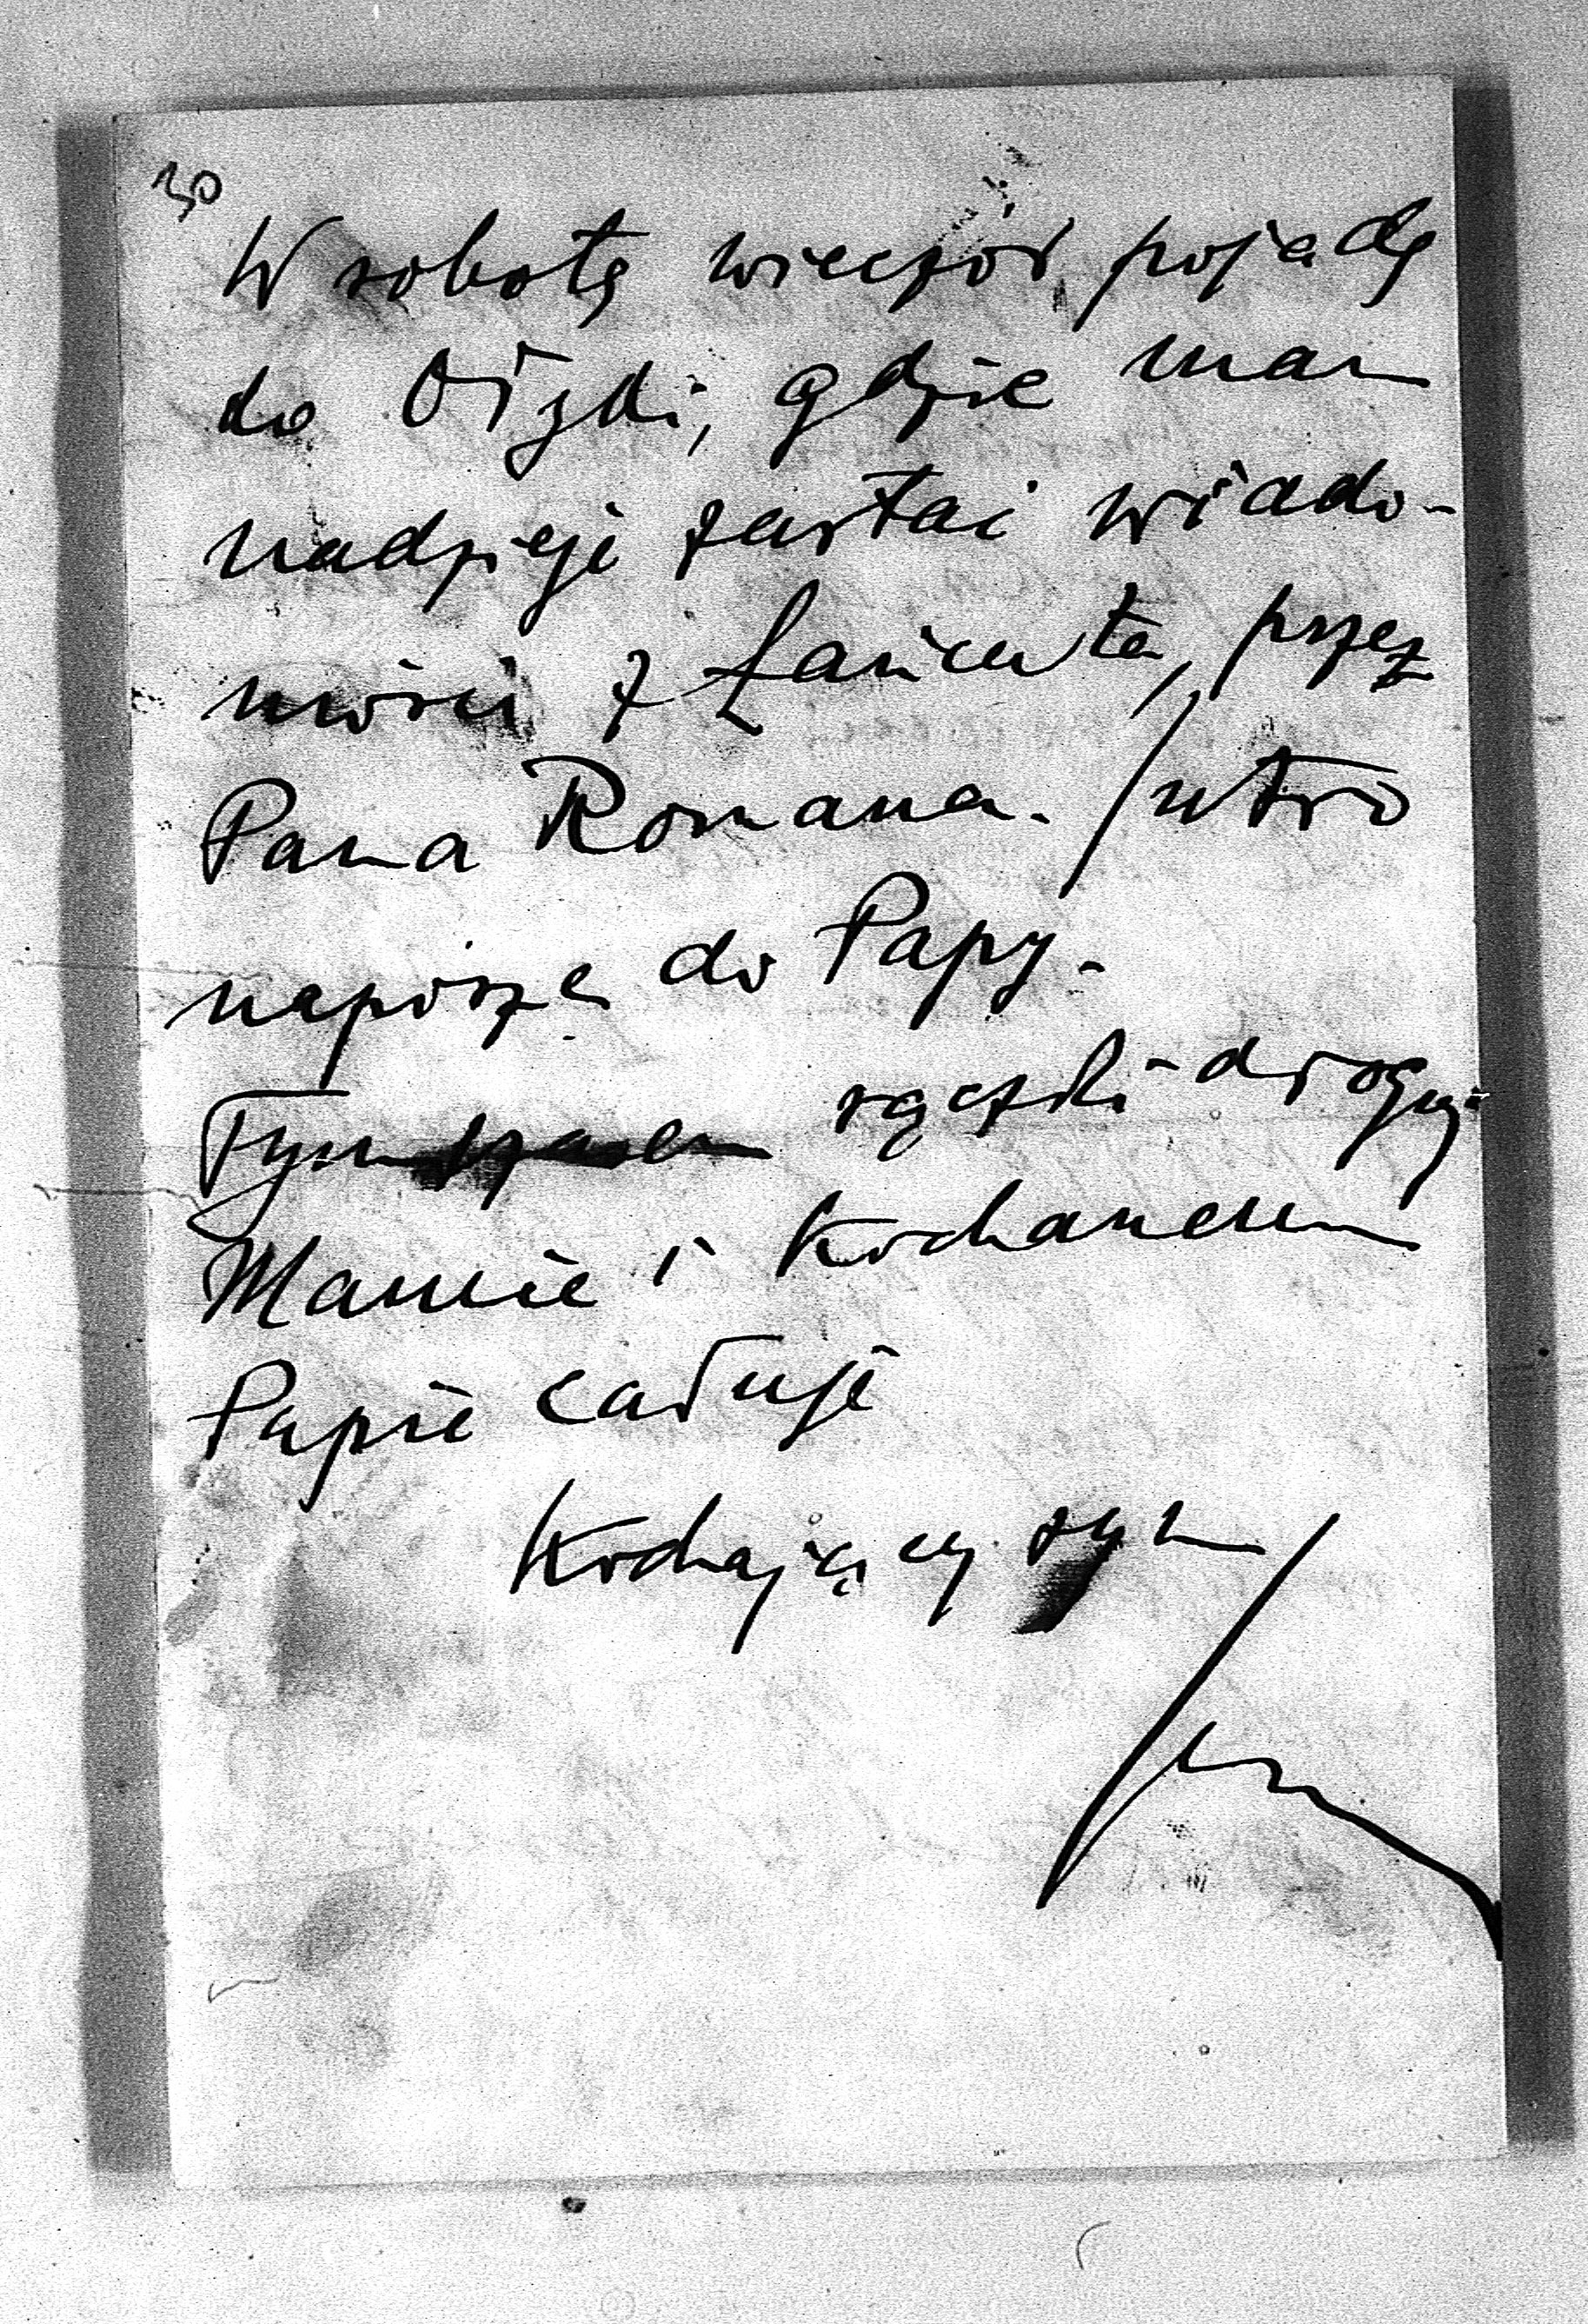 30
W sobotę wieczór pojadę
do Ołyki, gdzie mam
nadzieję zastać wiado-
mości z Łańcuta, przez
Pana Romana. Jutro
napiszę do Papy.
Tymczasem rączki drogiej
Mamie i Kochanemu
Papie całuję
Kochający syn